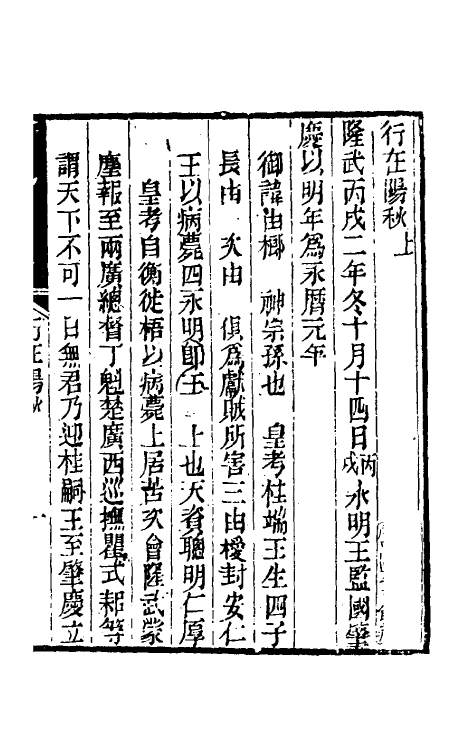 行在陽秋上
隆武丙戌二年冬十月十四日丙戌永明王監國肇
慶以明年為永曆元年
御諱由榔　神宗孫也　皇考桂端王生四子
長由　次由　俱為獻賊所害三由㰐封安仁
王以病薨四永明郎王　上也天資聰明仁厚
皇考自衡徙梧以病薨上居苫次會隆武蒙
塵報至兩廣總督丁魁楚廣西巡撫瞿式耜等
謂天下不可一日無君乃迎桂嗣王至肇慶立
行在陽秋
一